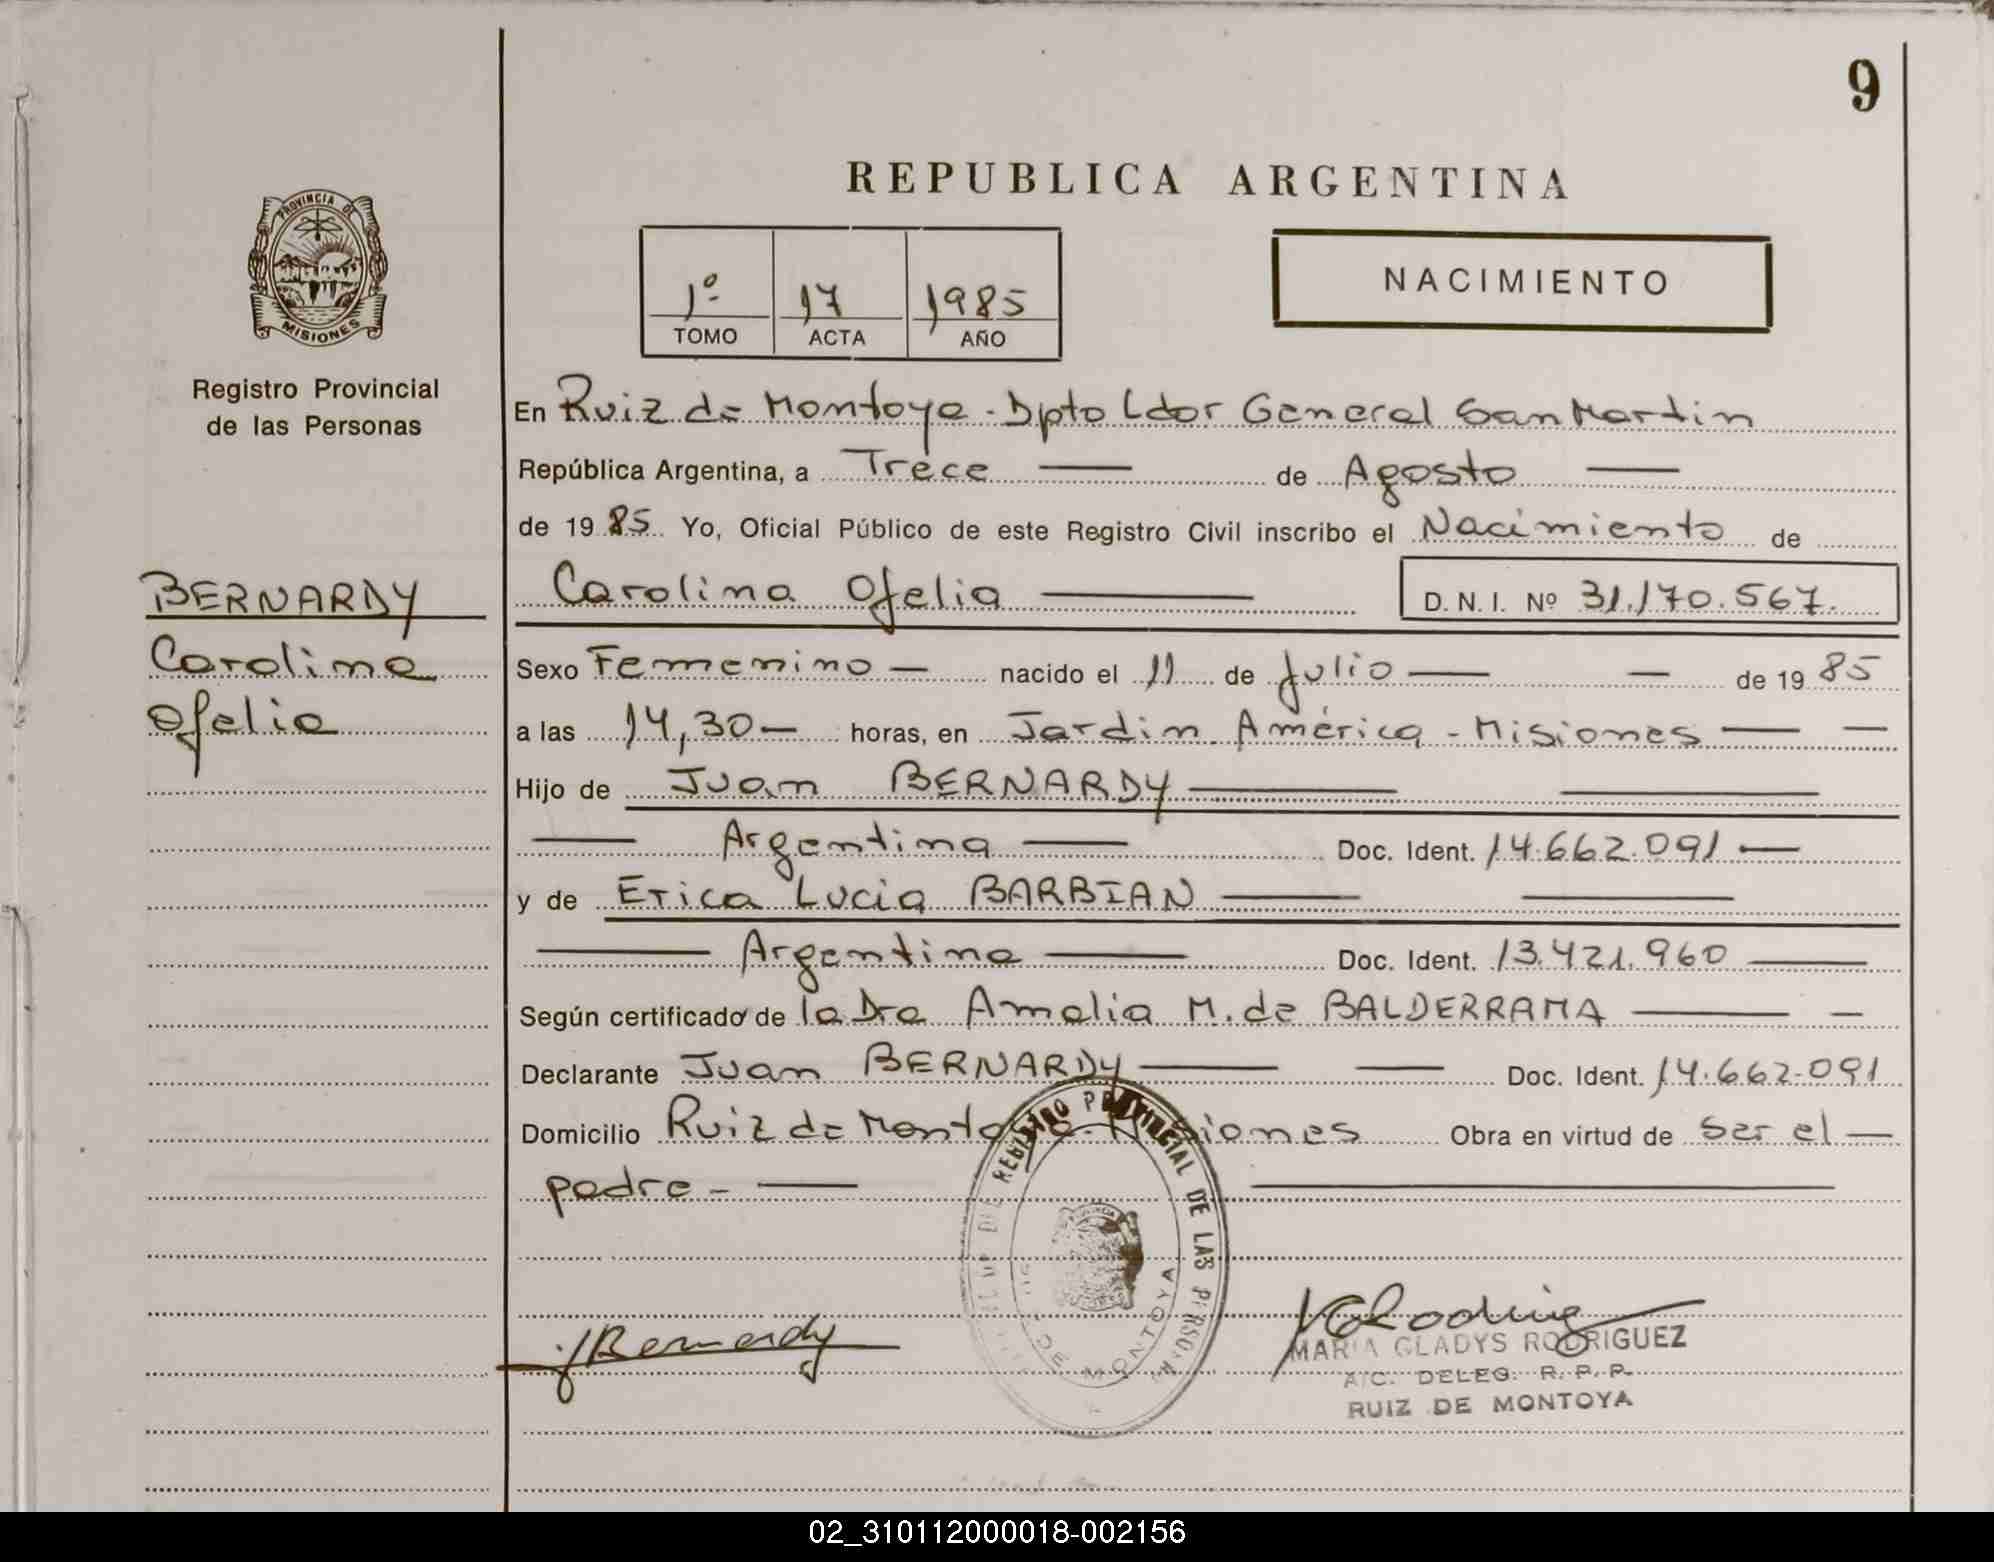 9
REPUBLICA ARGENTINA
PROVINCIA DE
MISIONES
1º 17 1985
TOMO ACTA AÑO
NACIMIENTO
Registro Provincial
de las Personas
En Ruiz de Montoya - Dpto Ldor General San Martin
República Argentina, a Trece — de Agosto —
de 1985. Yo, Oficial Público de este Registro Civil inscribo el Nacimiento de
BERNARDY
Carolina
Ofelia
Carolina Ofelia —
D. N. I. Nº 31.170.567.
Sexo Femenino — nacido el 11 de Julio — — de 1985
a las 14,30 — horas, en Jardin América - Misiones — —
Hijo de Juan BERNARDY — —
— Argentina — Doc. Ident. 14.662.091 —
y de Erica Lucia BARBIAN — —
— Argentina — Doc. Ident. 13.421.960 —
Según certificado de la Dra Amalia M. de BALDERRAMA — —
Declarante Juan BERNARDY — — Doc. Ident. 14.662.091
Domicilio Ruiz de Montoya - Misiones Obra en virtud de Ser el —
padre - — —
REGISTRO PROVINCIAL DE LAS PERSONAS
DE MONTOYA
J Bernardy
MARIA GLADYS RODRIGUEZ
A/C. DELEG. R. P. P.
RUIZ DE MONTOYA
02_310112000018-002156